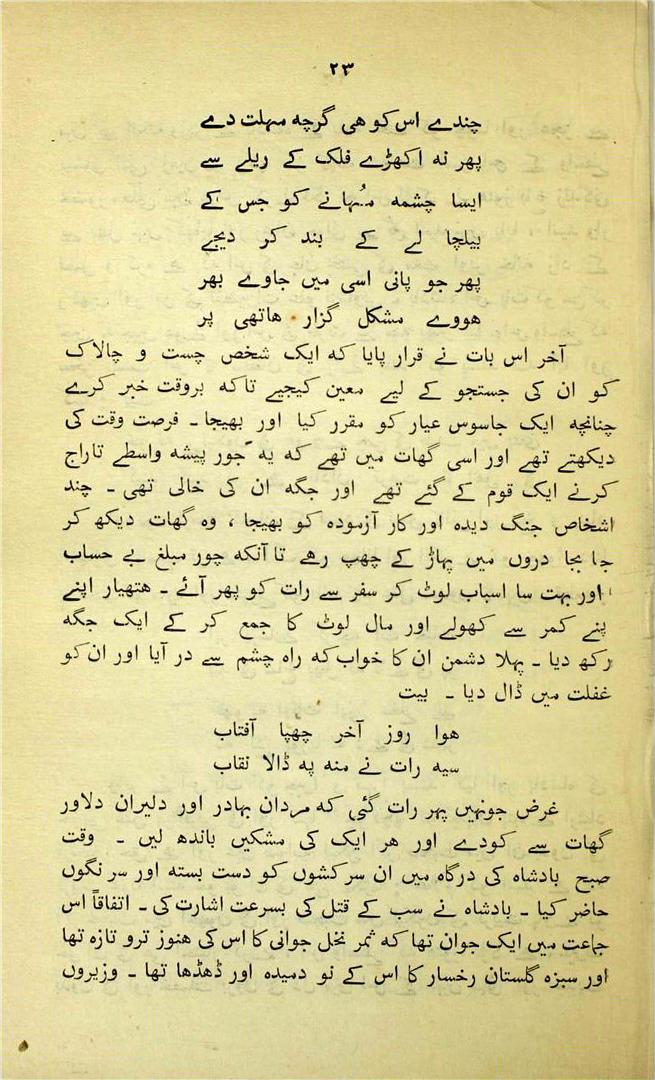 ۲۳
چندے اس کو ھی گرچه مہلت دے
پھر نه اکھڑے فلک کے ریلے سے
ایسا چشمه مُہانے کو جس کے
بیلچا لے کے بند کر دیجے
پھر جو پانی اسی میں جاوے بھر
ھووے مشکل گزار ھاتھی پر
آخر اس بات نے قرار پایا که ایک شخص چست و چالاک
کو ان کی جستجو کے لیے معین کیجیے تاکه بروقت خبر کرے
چنانچه ایک جاسوس عیار کو مقرر کیا اور بھیجا ۔ فرصت وقت کی
دیکھتے تھے اور اسی گھات میں تھے که یه چور پیشه واسطے تاراج
کرنے ایک قوم کے گئے تھے اور جگه ان کی خالی تھی ۔ چند
اشخاص جنگ دیده اور کار آزموده کو بھیجا ، وه گھات دیکھ کر
جا بجا دروں میں پہاڑ کے چھپ رھے تا آنکه چور مبلغ بے حساب
اور بہت سا اسباب لوٹ کر سفر سے رات کو پھر آئے ۔ ھتھیار اپنے
پنے کمر سے کھولے اور مال لوٹ کا جمع کر کے ایک جگه
رکھ دیا ۔ پہلا دشمن ان کا خواب که راه چشم سے در آیا اور ان کو
غفلت میں ڈال دیا ۔ بیت
ھوا روز آخر چھپا آفتاب
سیه رات نے منه په ڈالا نقاب
غرض جونہیں پہر رات گئی که مردان بہادر اور دلیران دلاور
گھات سے کودے اور ھر ایک کی مشکیں باندھ لیں ۔ وقت
صبح بادشاه کی درگاه میں ان سرکشوں کو دست بسته اور سر نگوں
حاضر کیا ۔ بادشاه نے سب کے قتل کی بسرعت اشارت کی ۔ اتفاقاً اس
جماعت میں ایک جوان تھا که ثمر نخل جوانی کا اس کی ھنوز ترو تازه تھا
اور سبزه گلستان رخسار کا اس کے نو دمیده اور ڈھڈھا تھا ۔ وزیروں